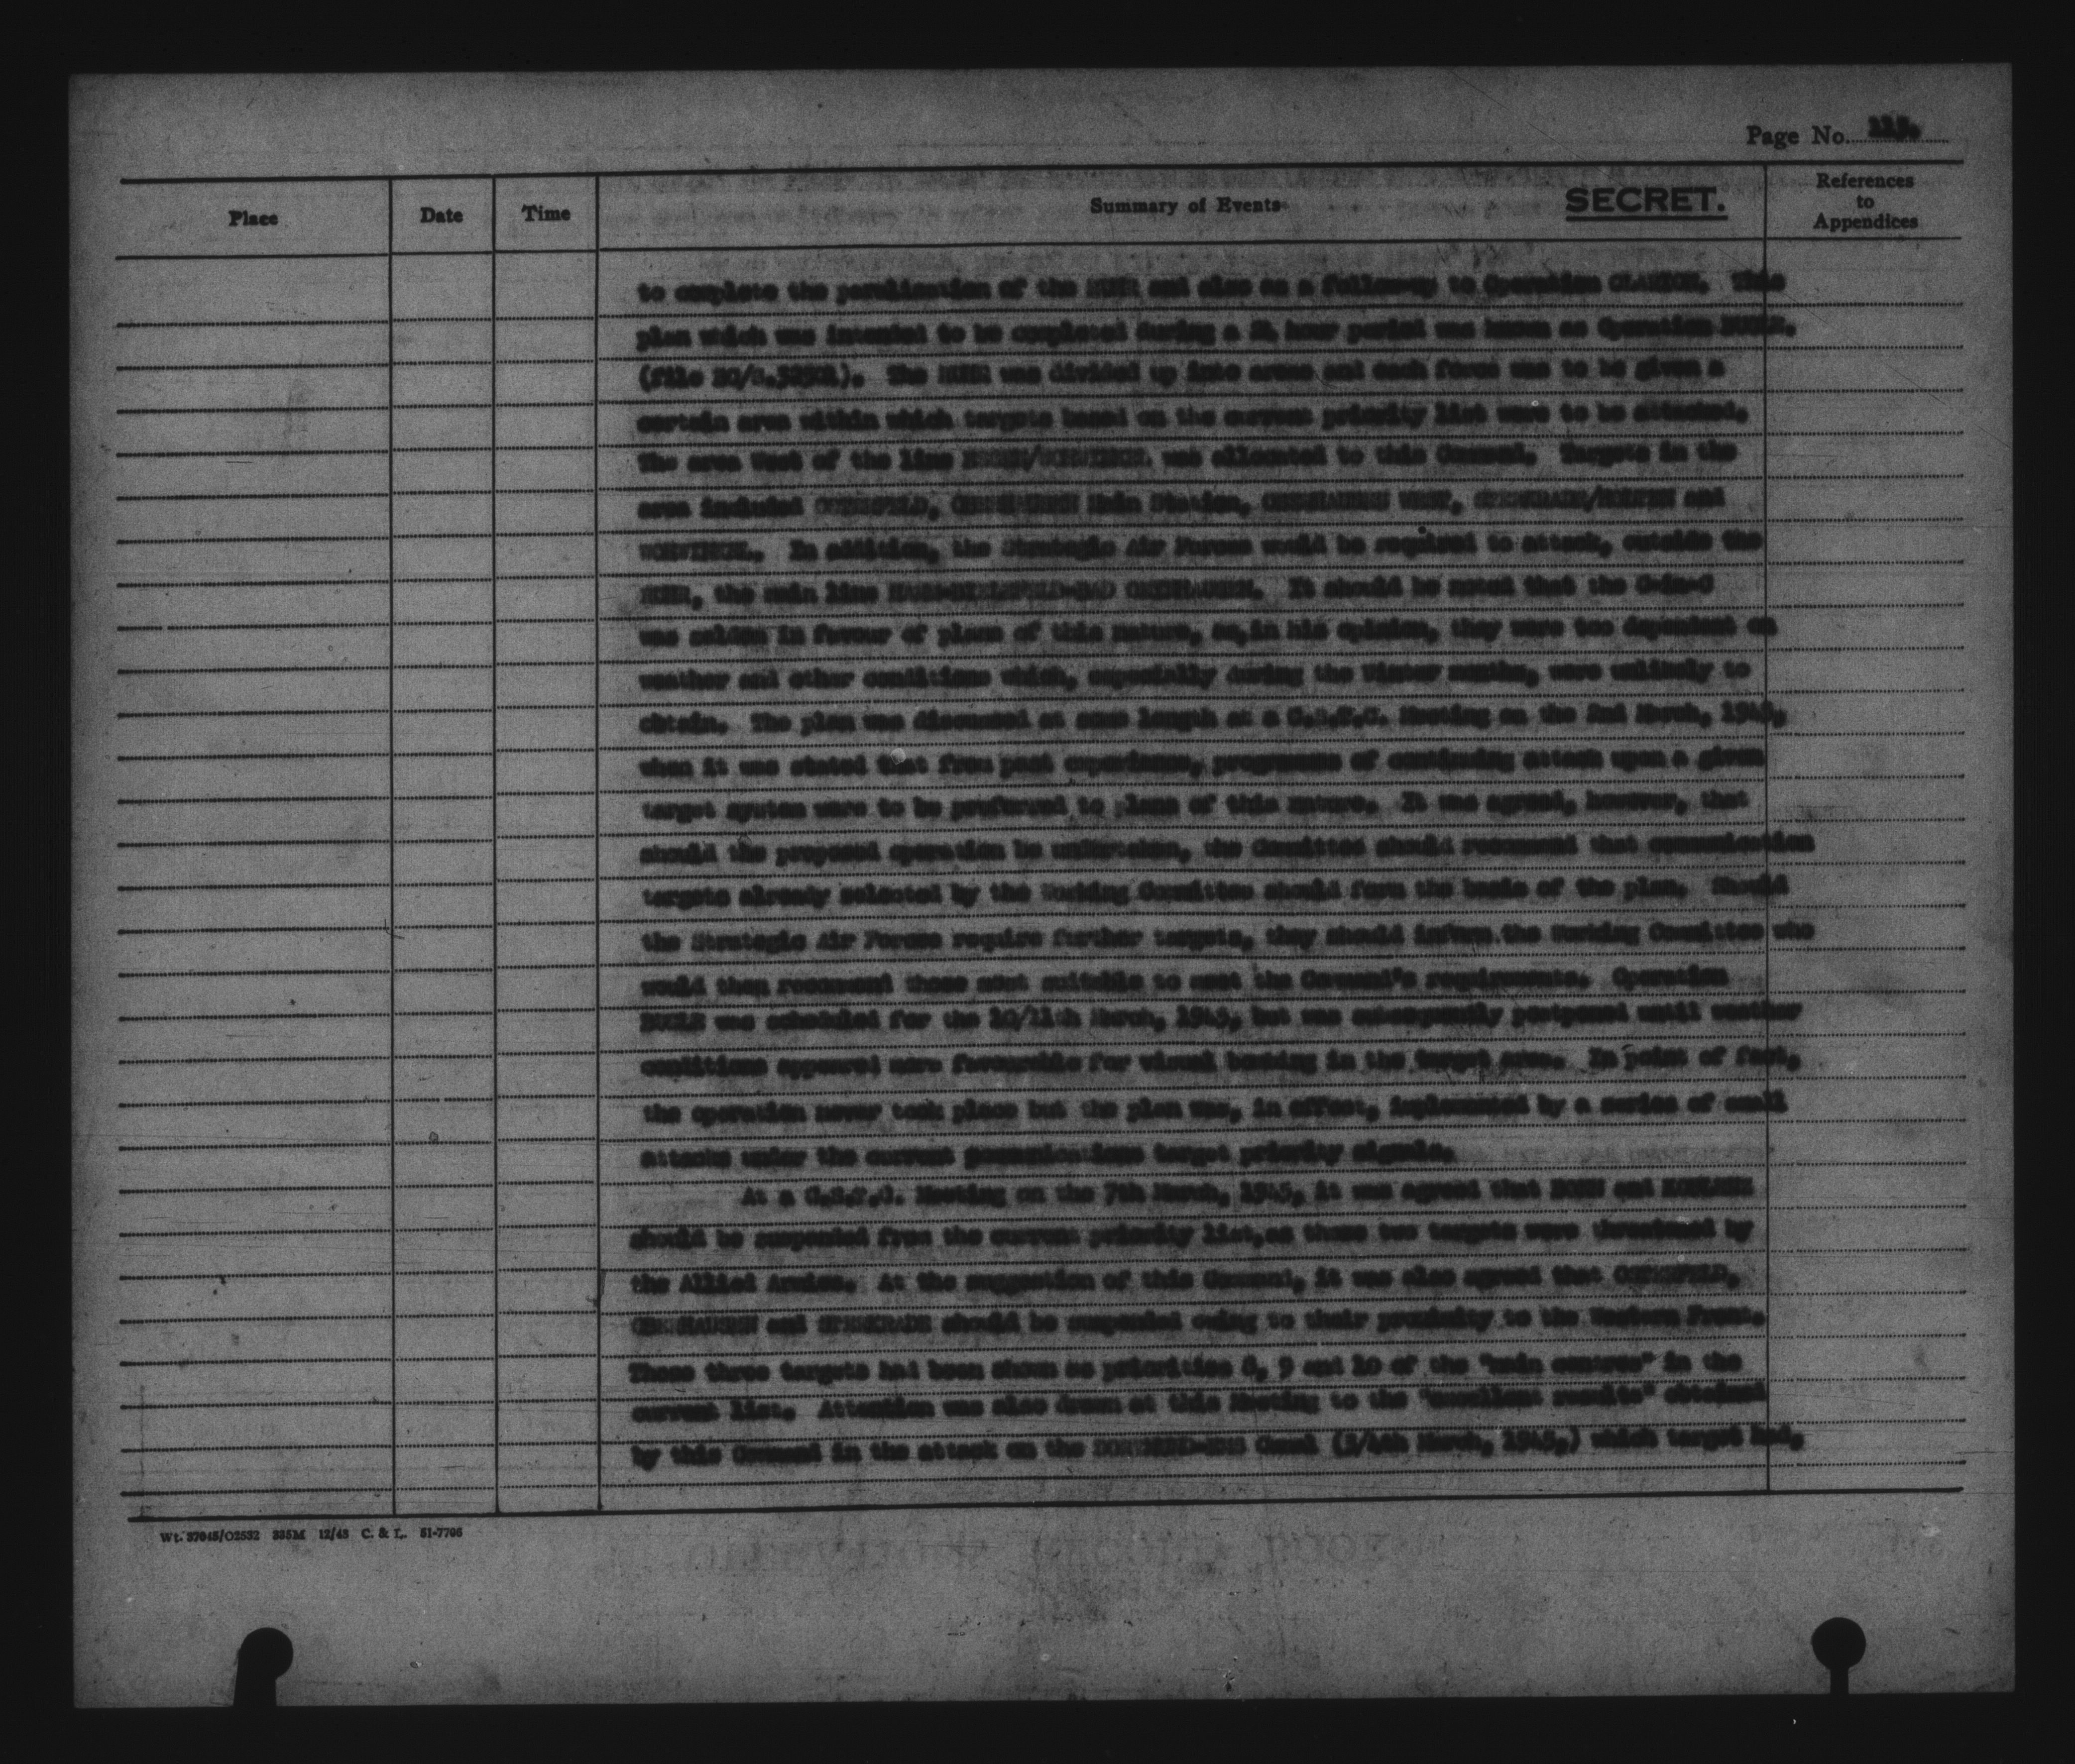 Page No.
Place
Date
Time
Summary of Events
SECRET.
References
to
Appendices
to complete the paralisation of the RUHR and also as a followup to Operation CLARION. This
plan which was intended to be completed during a 24 hour period was known as Operation
(file The RUHR was divided up into areas and each force was to be given a
certain area within which targets based on the current priority list were to be attacked.
The area West of the line was allocated to this Command. Targets in the
area included COESFELD, OBERHAUSEN Main Station, OBERHAUSEN WEST, STERKRADE/HOLTEN and
In addition, the Strategic Air Forces would be required to attack, outside the
RUHR, the main line HAMM-BIELEFELD-BAD OEYNHAUSEN. It should be noted that the C-in-C
was seldom in favour of plans of this nature, as, in his opinion, they were too dependent on
weather and other conditions which, especially during the Winter months, were unlikely to
obtain. The plan was discussed at some length at a C.S.T.C. Meeting on the 2nd March, 1945,
when it was stated that from past experience, programmes of continuing attack upon a given
target system were to be preferred to plans of this nature. It was agreed, however, that
should the proposed operation be undertaken, the Committee should recommend that communication
targets already selected by the Working Committee should form the basis of the plan. Should
the Strategic Air Forces require further targets, they should inform the Working Committee who
would then recommend those most suitable to meet the Command's requirements. Operation
was scheduled for the 10/11th March, 1945, but was subsequently postponed until weather
conditions appeared more favourable for visual bombing in the target area. In point of fact,
the operation never took place but the plan was, in effect, implemented by a series of small
attacks under the current communications target priority signals.
At a C.S.T.C. Meeting on the 7th March, 1945, it was agreed that BONN and KOBLENZ
should be suspended from the current priority list, as these two targets were threatened by
the Allied Armies. At the suggestion of this Command, it was also agreed that COESFELD,
OBERHAUSEN and STERKRADE should be suspended owing to their proximity to the Western Front.
These three targets had been shown as priorities 8, 9 and 10 of the "main centres" in the
current list. Attention was also drawn at this Meeting to the "excellent results" obtained
by this Command in the attack on the DORTMUND-EMS Canal (3/4th March, 1945,) which target had,
Wt. 37045/O2532 335M 12/43 C. & L. 51-7706